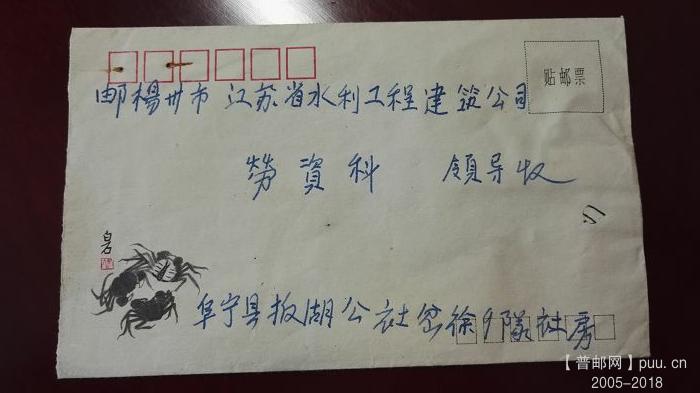 贴邮票
邮楊州市 江苏省水利工程建筑公司
勞資科 領导收
白石
阜宁县板湖公社岔徐9隊社房
【普邮网】puu.cn
2005-2018